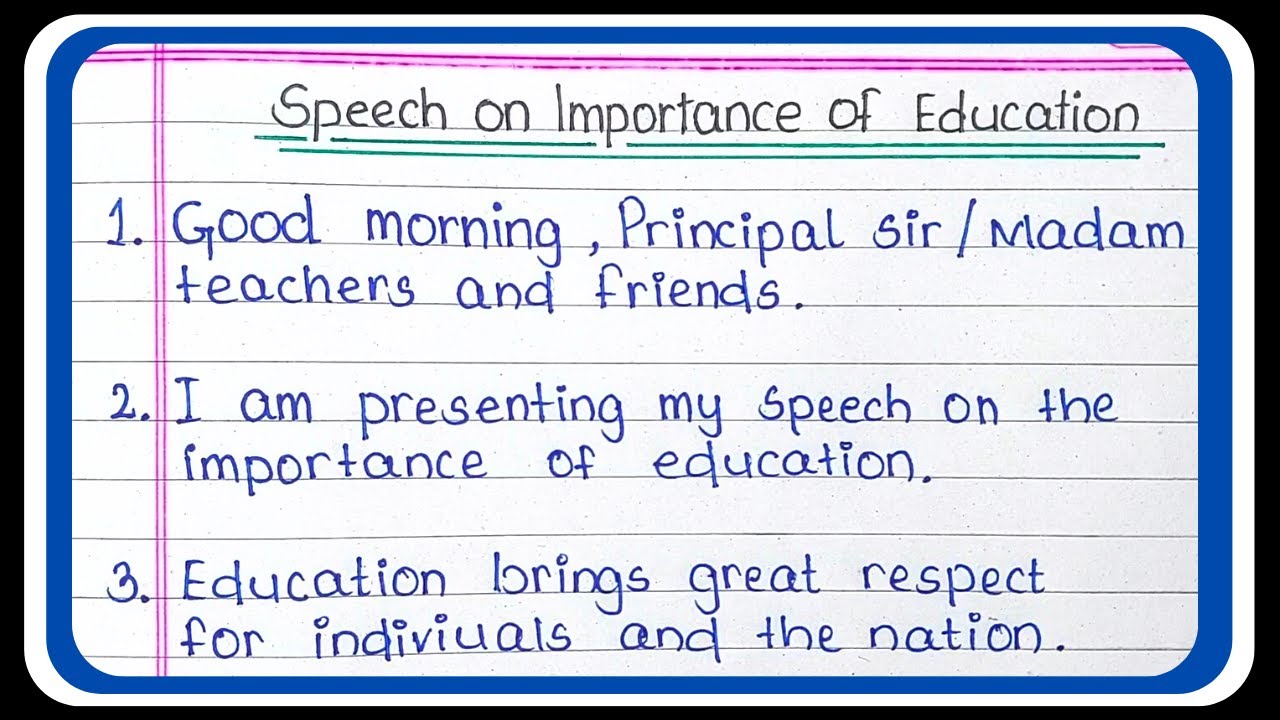 Speech on Importance of Education
1. Good morning, Principal sir/Madam
teachers and friends.
2. I am presenting my speech on the
importance of education.
3. Education brings great respect
for indiviuals and the nation.